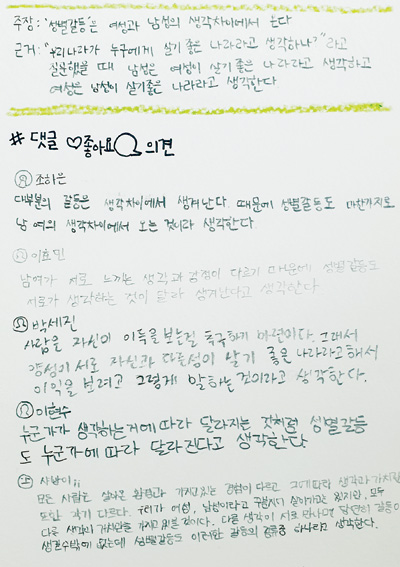 주장: "성별갈등"은 여성과 남성의 생각차이에서 온다
근거: "우리나라가 누구에게 살기 좋은 나라라고 생각하나?"라고
질문했을 때 남성은 여성이 살기 좋은 나라라고 생각하고
여성은 남성이 살기 좋은 나라라고 생각한다
# 댓글 ♡좋아요 의견
조하은
대부분의 갈등은 생각차이에서 생겨난다. 때문에 성별갈등도 마찬가지로
남여의 생각차이에서 오는 것이라 생각한다.
이효민
남여가 서로 느끼는 생각과 감정이 다르기 때문에 성별갈등도
서로가 생각하는 것이 달라 생겨난다고 생각한다
박세진
사람은 자신이 이득을 보는걸 추구하기 마련이다. 그래서
양성이 서로 자신과 다른성이 살기 좋은 나라라고해서
이익을 보려고 그렇게 말하는 것이라고 생각한다.
이현수
누군가가 생각하는거에 따라 달라지는 것처럼 성별갈등
도 누군가에 따라 달라진다고 생각한다
모든 사람은 살아온 환경과 가지고있는 경험이 다르고 그에따라 생각과 가치관
또한 각기 다르다. 우리가 여성, 남성이라고 살아가고 있지만, 모두
다른 생각과 가치관을 가지고 있을 것이다. 다른 생각이 서로 만나면 당연히 갈등이
생길수밖에 없는데 성별갈등도 이러한 갈등의 종류중 하나라고 생각한다.